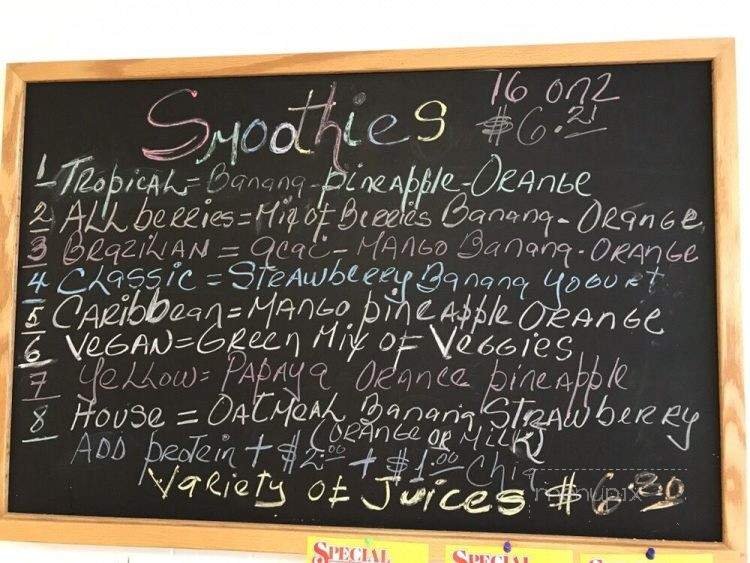 Smoothies 16 onz
$6.21
1 Tropical = Banana - pineapple - Orange
2 All berries = Mix of Berries Banana - Orange
3 Brazilian = acai - Mango Banana - Orange
4 Classic = Strawberry Banana Yogurt
5 Caribbean = Mango pineapple Orange
6 Vegan = Green Mix of Veggies
7 Yellow = Papaya Orange pineapple
8 House = Oatmeal Banana Strawberry
(Orange or Milk)
Add protein + $2.00 + $1.00 Chia
Variety of Juices $6.20
menupix
SPECIAL SPECIAL SPECIAL